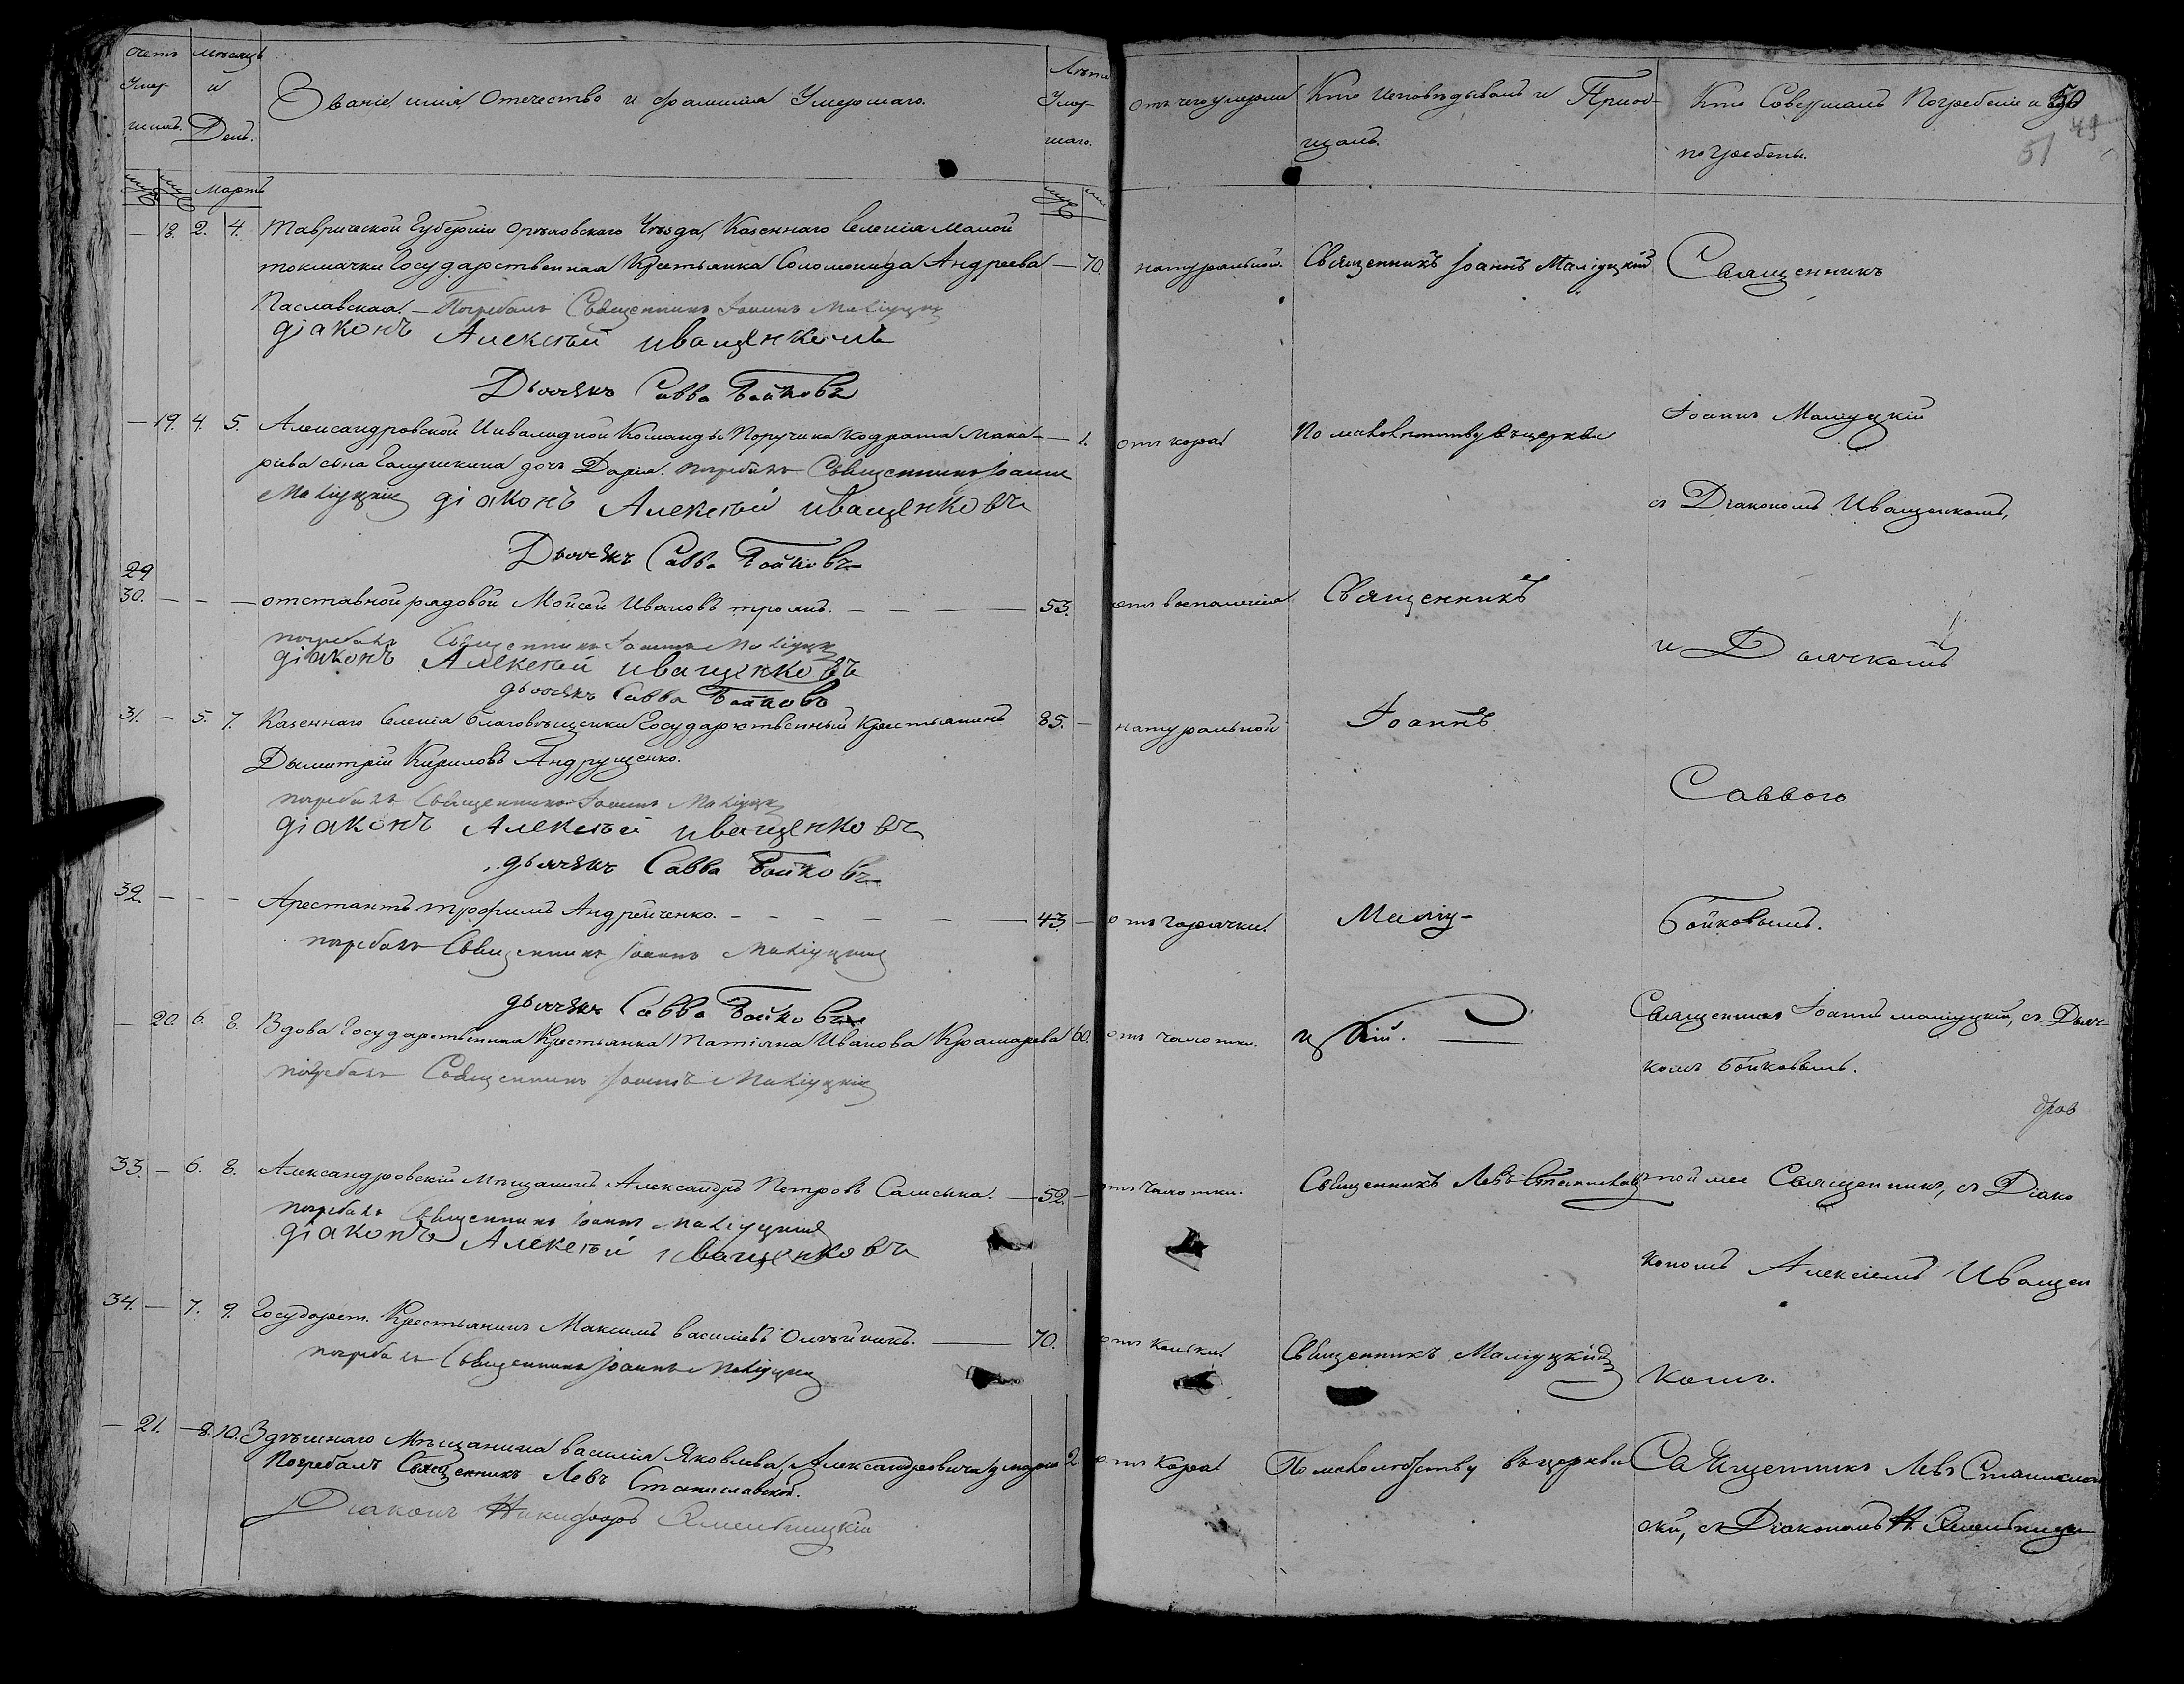 Счетъ Умер-
шихъ.
Мѣсяцъ
и
День.
Званіе имя Отечество и фамилія Умершаго.
Лѣта
Умер-
шаго.
Отъ чего умерли
Кто исповѣдывалъ и Пріоб-
щалъ.
Кто Совершалъ Погребеніе и
погребены.
50
49
51
Мартъ
— 18. 2. 4. Таврической Губерніи Орѣховскаго Уѣзда, Казеннаго Селенія Малой
Токмачки Государственная Крестьянка Соломонида Андреева — 70. натуральной. Священникъ Іоаннъ Маліуцкій Священникъ
Паславская. — Погребалъ Священникъ Іоаннъ Маліуцкій
діаконъ Алексѣй Иващенковъ
Дьячекъ Савва Бойковъ
— 19. 4. 5. Александровской Инвалидной Команды Поручика Кодрата Мака- — 1. отъ кора По малолѣтству въ церкви Іоаннъ Маліуцкій
рієва сына Галушкина дочь Дарія. погребалъ Священникъ Іоаннъ
Маліуцкій діаконъ Алексѣй Иващенковъ съ Діакономъ Иващенкомъ,
Дьячекъ Савва Бойковъ
29
30. — — — отставной рядовой Мойсей Ивановъ — 53. отъ воспаленія Священникъ
погребалъ Священникъ Іоаннъ Маліуцкій и Дьячкомъ
діаконъ Алексѣй Иващенковъ
дьячекъ Савва Бойковъ
31. — 5. 7. Казеннаго Селенія Благовѣщенки Государственный Крестьянинъ 85. — натуральной Іоаннъ
Дымитрій Кириловъ Андрущенко.
погребалъ Священникъ Іоаннъ Маліуцкій Саввою
діаконъ Алексѣй Иващенковъ
дьячекъ Савва Бойковъ
32. — — — Арестантъ Трофимъ Андрейченко. — 43. — отъ горячки. Маліу- Бойковымъ.
погребалъ Священникъ Іоаннъ Маліуцкий
дьячекъ Савва Бойковъ
— 20. 6. 8. Вдова Государственная Крестьянка Татіяна Иванова Крамарева 60. отъ чахотки. цкій. Священникъ Іоаннъ Маліуцкій, съ Дьяч-
погребалъ Священникъ Іоаннъ Маліуцкій комъ Бойковымъ.
33. — 6. 8. Александровскій Мѣщанинъ Александръ Петровъ Самсыка. — 52. — отъ чахотки. Священникъ Левъ Станиславскій той же Священникъ, съ Діако
погребалъ Священникъ Іоаннъ Маліуцкий
діаконъ Алексѣй Иващенковъ кономъ Алексіемъ Иващен
34. — 7. 9. Государст. Крестьянинъ Максимъ Василіевъ Олѣйникъ. — 70. отъ колики. Священникъ Маліуцкій комъ.
погребалъ Священникъ Іоаннъ Маліуцкій
— 21. — 8. 10. Здѣшнаго Мѣщанина Василія Яковлева Александровича 2. отъ Кора По малолѣтству въ церкви Священникъ Левъ Станислав
Погребалъ Священникъ Левъ Станиславскій.
Діаконъ Никифоръ скій, съ Діакономъ Н.